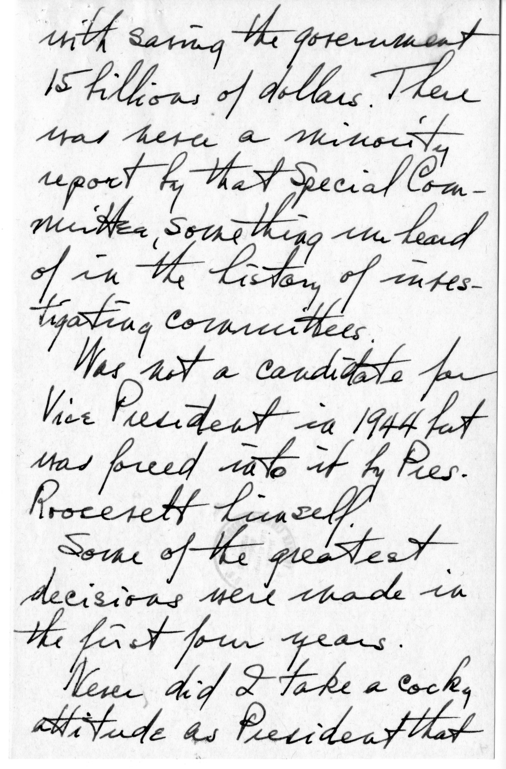 with saving the government
15 billions of dollars. There
was never a minority
report by that Special Com-
mittee, something unheard
of in the history of inves-
tigating committees.
Was not a candidate for
Vice President in 1944 but
was forced into it by Pres.
Roosevelt himself.
Some of the greatest
decisions were made in
the first four years.
Never did I take a cocky
attitude as President that